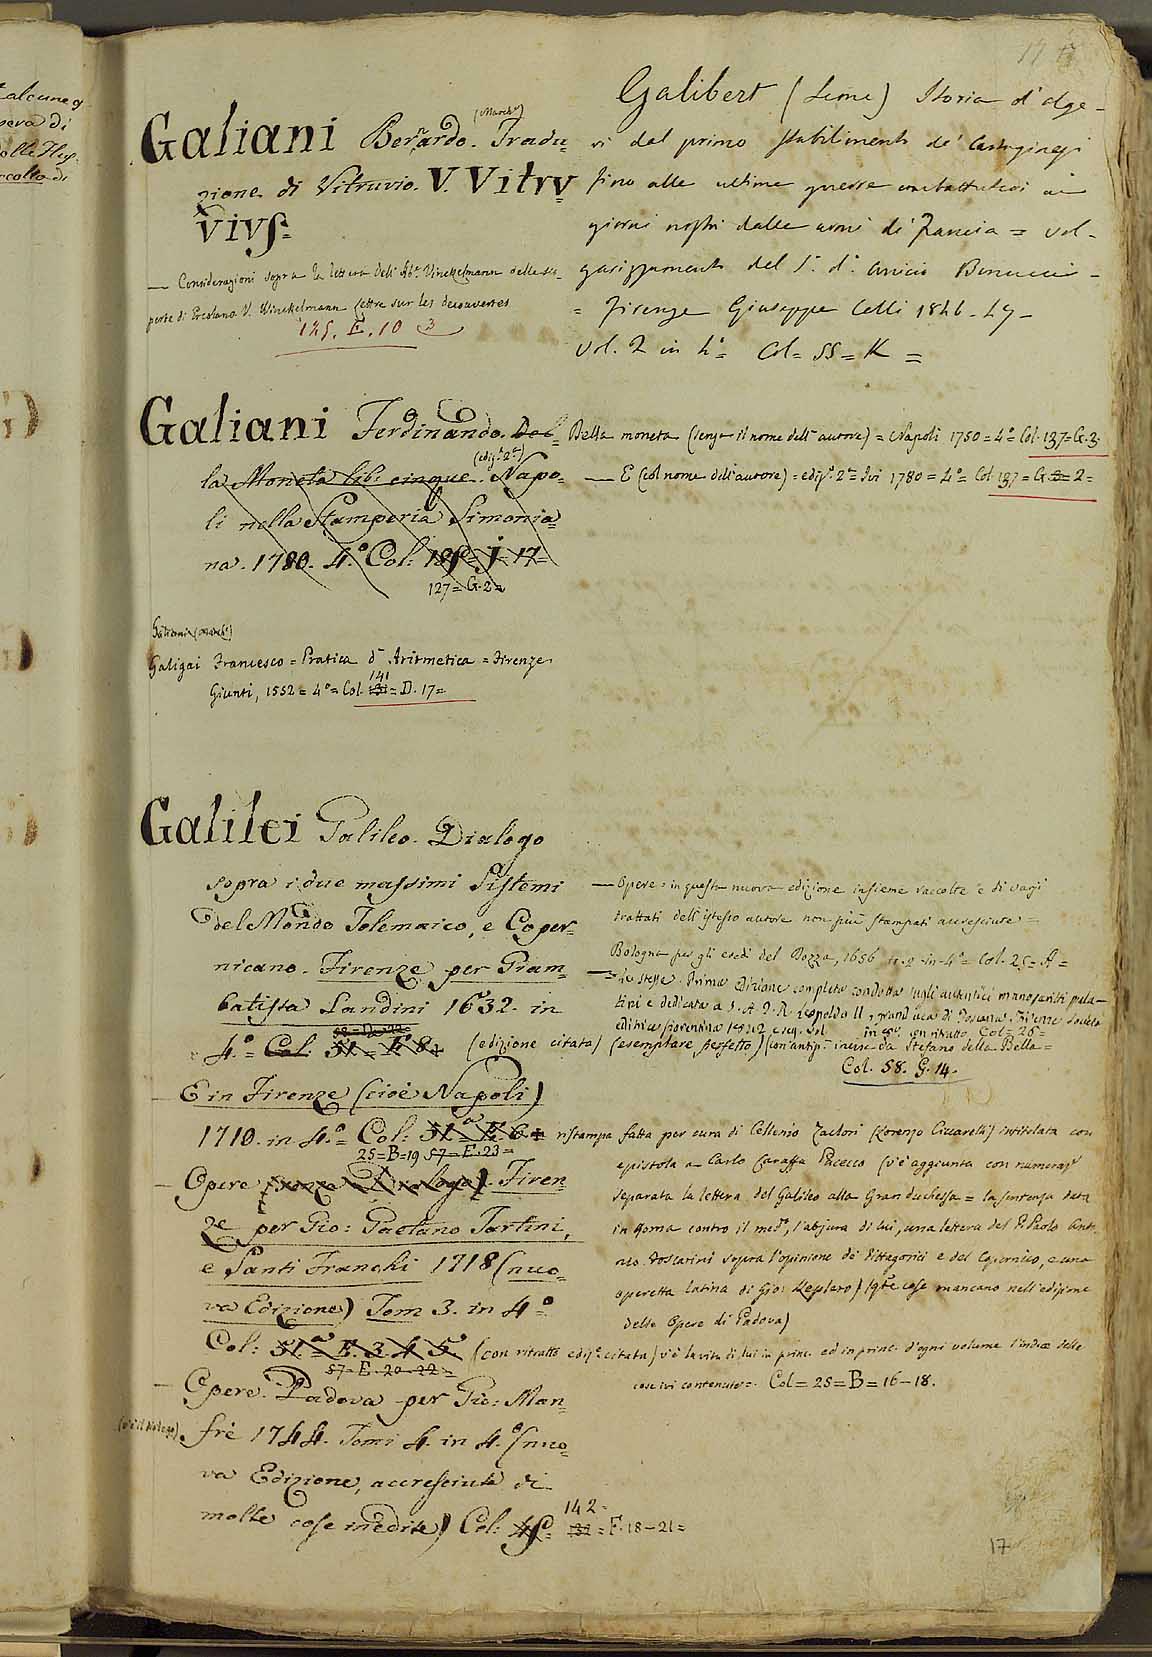 Galiani Bernardo. Tradu=
zione di Vitruvio. V. Vitru
vius=
— Considerazioni sopra la lettera dell'Ab.e Vinckelmann delle sco-
perte di Ercolano V. Winckelmann Lettre sur les decouvertes
125. E. 10 3
Galiani Ferdinando. Del=
(ediz.e 2.da)
la Moneta lib: cinque. Napo=
li nella Stamperia Simonia=
na. 1780. 4.o Col: j. 17=
127=G.2=
Galigai Francesco = Pratica d'Aritmetica = Firenze
141
Giunti, 1552 = 4.o = Col. 131 = D. 17=
Galilei Galileo. Dialogo
sopra i due massimi Sistemi
del Mondo Tolemaico, e Coper=
nicano. Firenze per Giam=
batista Landini 1632. in
4.o = Col: 51. = E. 8. (edizione citata) (esemplare perfetto) (con antip. incisa da Stefano della Bella=
E in Firenze (cioè Napoli)
1710. in 4.o = Col: 51.a = E. 6= ristampa fatta per cura di Cellenio Zaclori (Lorenzo Ciccarelli) intitolata con
25=B=19 57=E.23=
Opere (senza il Dialogo). Firen=
ze per Gio: Gaetano Tartini,
e Santi Franchi 1718 (nuo=
va Edizione) Tom 3. in 4.o=
Col: 51.a = E. 3. 4. 5. (con ritratto ediz.e citata) v'è la vita di lui in princ. ed in princ. d'ogni volume l'indice delle
57=E.20-22=
Opere. Padova per Gio: Man=
frè 1744. Tomi 4. in 4.o (nuo=
va Edizione, accresciuta di
molte cose inedite) Col:
142=
132 = F. 18-21=
Galibert (Leone) Storia d'Alge-
ri dal primo stabilimento de' Cartaginesi
fino alle ultime guerre combattutesi ai
giorni nostri dalle armi di Francia = vol-
garizzamento del S.r d.r
= Firenze Giuseppe Celli 1846-47-
Vol. 2 in 4.o= Col=SS=K=
Della moneta (senza il nome dell'autore) = Napoli 1750 = 4.o= Col. 137=G.3.
— E (col nome dell'autore) = ediz.e 2.da = Ivi 1780 = 4.o= Col 137 = G. 2=
— Opere = in questa nuova edizione insieme raccolte e di varj
trattati dell'istesso autore non più stampati accresciute =
Bologna per gli eredi del Dozza, 1656 to. 2 in 4.o= Col. 25=A=
— Le stesse. Prima Edizione completa condotta sugli autentici manoscritti pala-
tini e dedicata a S. A. I. R. Leopoldo II, granduca di Toscana. Firenze Società
editrice fiorentina 1842 e seg. Vol in 8.vo con ritratto Col=26=
Col. 58. G. 14.
epistola a Carlo Caraffa Pacecco (v'è aggiunta con numeraz.e
separata la lettera del Galileo alla Granduchessa = la sentenza data
in Roma contro il med.o, l'abjura di lui, una lettera del P. Paolo Anto-
nio Foscarini sopra l'opinione de' Pittagorici e del Copernico, e una
operetta latina di Gio: Keplero) (q.te cose mancano nell'edizione
delle Opere di Padova)
cose ivi contenute= Col=25=B=16-18.
17